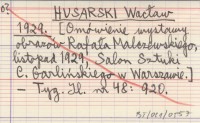 HUSARSKI Wacław
1929. [Omówienie wystawy
obrazów Rafała Malczewskiego,
listopad 1929, Salon Sztuki
C. Garlińskiego w Warszawie.]
— Tyg. Il. nr 48: 920.